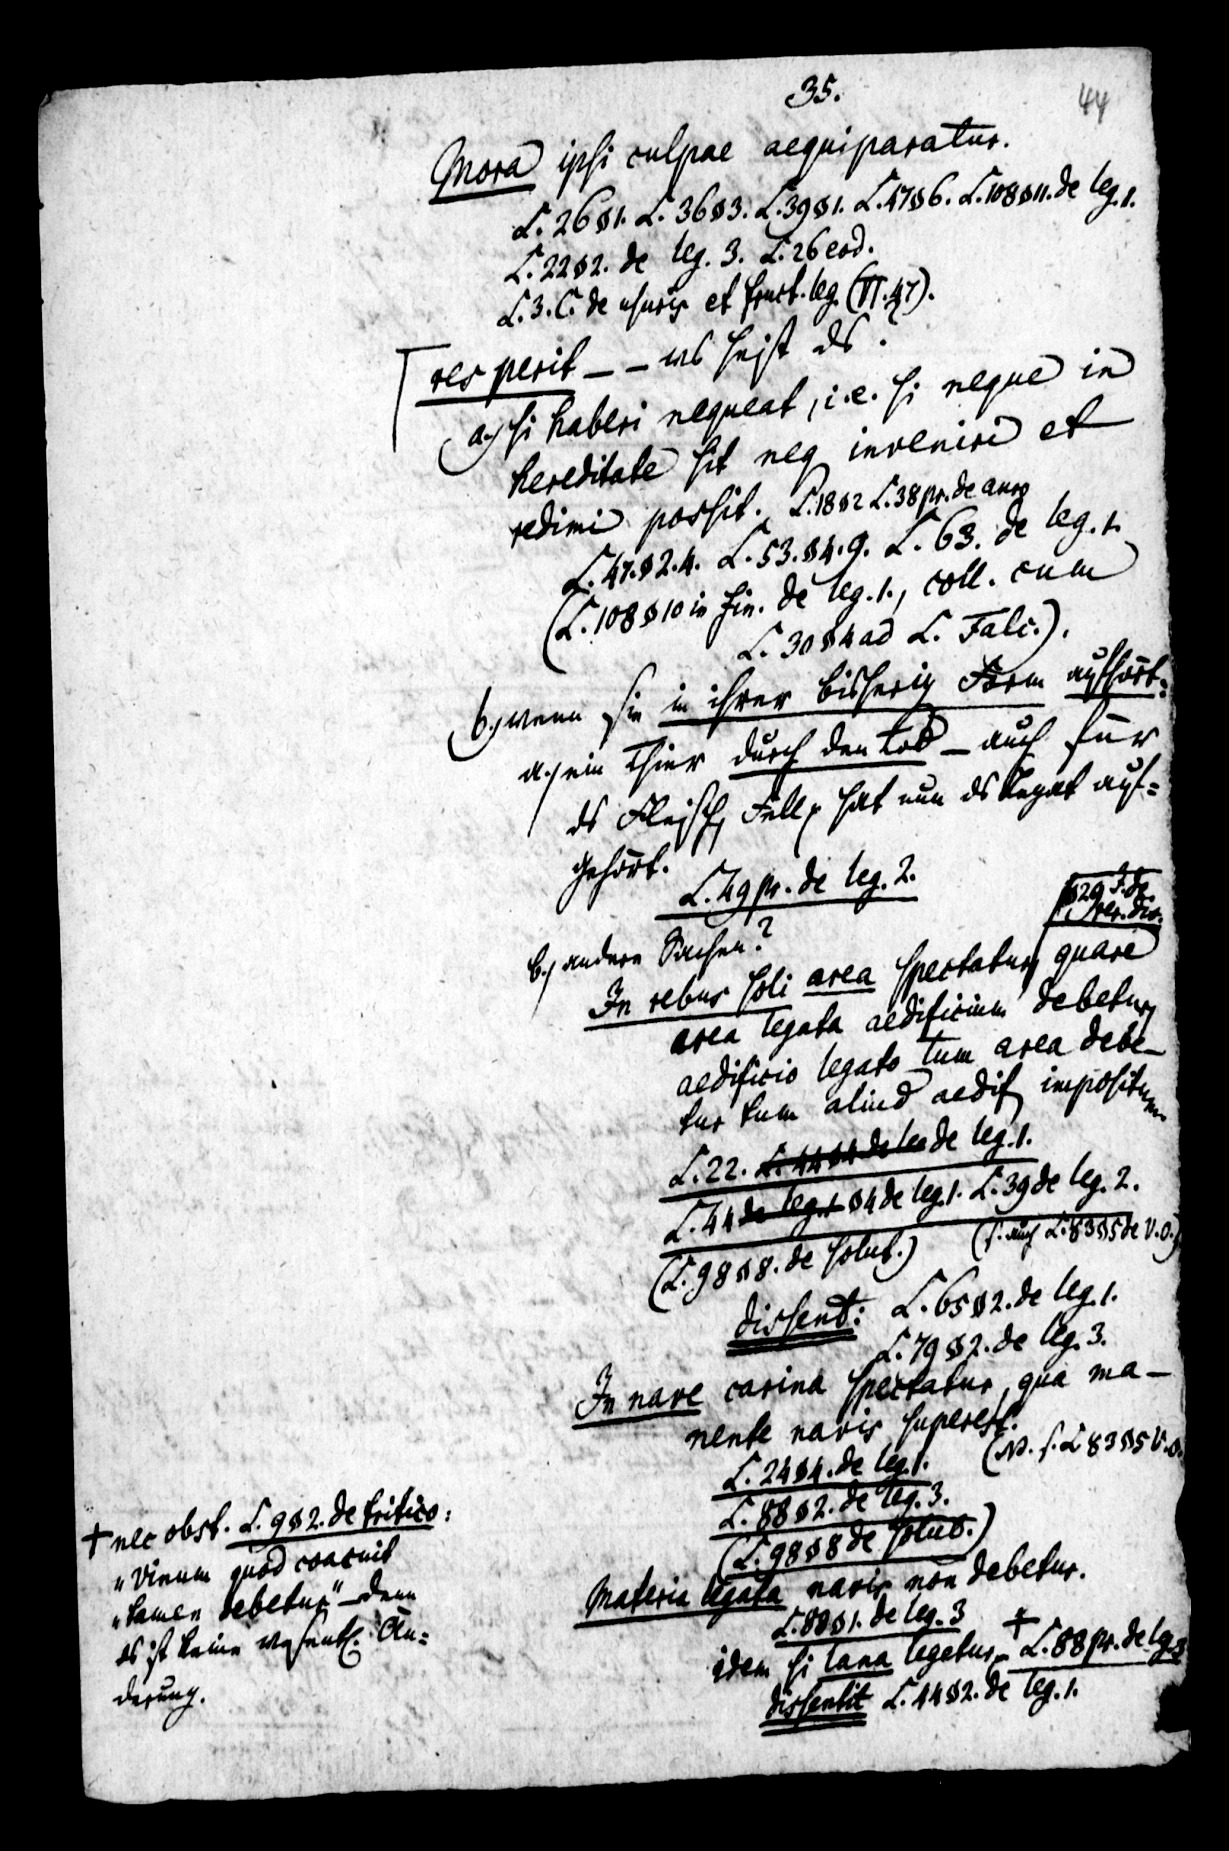 35.
44
Mora ipsi culpae aequiparatur.
L. 26 § 1. L. 36 § 3. L. 39 § 1. L. 47 § 6. L. 108 § 11. de leg. 1.
L. 22 § 2. de leg. 3. L. 26 eod.
L. 3. C. de usuris et fruct. leg. (VI. 47).
res perit — — ws heist ds?
a.) si haberi nequeat, i. e. si neque in
hereditate sit neq inveniri et
redimi possit. L. 18 § 2 L. 38 pr. de auro
L. 47. § 2. 4. L. 53. § 4. 9. L. 63. de leg. 1.
(L. 108 § 10 in fin. de leg. 1., coll. cum
L. 30 § 4 ad L. Falc.).
b.) wenn sie in ihrer bisherig Form aufhört:
a.) ein Thier durch den Tod — auch für
ds Fleisch, Fell hat nun ds Legat auf=
gehört.
L. 49 pr. de leg. 2.
b.) andere Sachen?
§ 29 J. de
rer. div.
In rebus soli area spectatur, quare
area legata aedificium debetur,
aedificio legato tum area debe–
tur tum aliud aedif, impositum.
L. 22. L. 44 § 4 de leg de leg. 1.
L. 44 de leg. 1 § 4 de leg. 1. L. 39 de leg. 2.
(L. 98 § 8. de solut.) (s. auch L. 83 § 5 de V. O.)
dissent: L. 65 § 2. de leg. 1.
L. 79 § 2. de leg. 3.
In nave carina spectatur, qua ma–
nente navis superest.
(N. s. L 83 § 5 V. O.
L. 24 § 4. de leg. 1.
L. 88 § 2. de leg. 3.
(L. 98 § 8 de solut.)
Materia legata navis non debetur.
L. 88 § 1. de leg. 3
idem si lana legetur. † L. 88 pr. de leg. 3
dissentit L. 44 § 2. de leg. 1.
† nec obst. L. 9 § 2. de tritico:
„Vinum quod coacuit
„tamen debetur" — denn
es ist keine wesentl. Än=
derung.